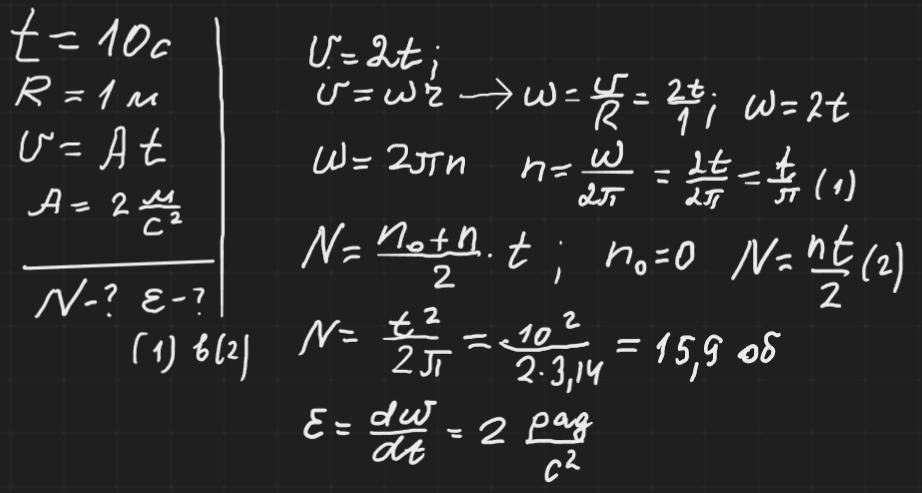 t = 10с
R = 1 м
υ = A t
A = 2 м/с²
N-? ε-?
(1) в(2)
υ = 2t;
υ = ωr → ω = υ/R = 2t/1; ω = 2t
ω = 2πn n = ω/2π = 2t/2π = t/π (1)
N = (n₀+n)/2 · t ; n₀=0 N = nt/2 (2)
N = t²/2π = 10²/2·3,14 = 15,9 об
ε = dω/dt = 2 рад/с²